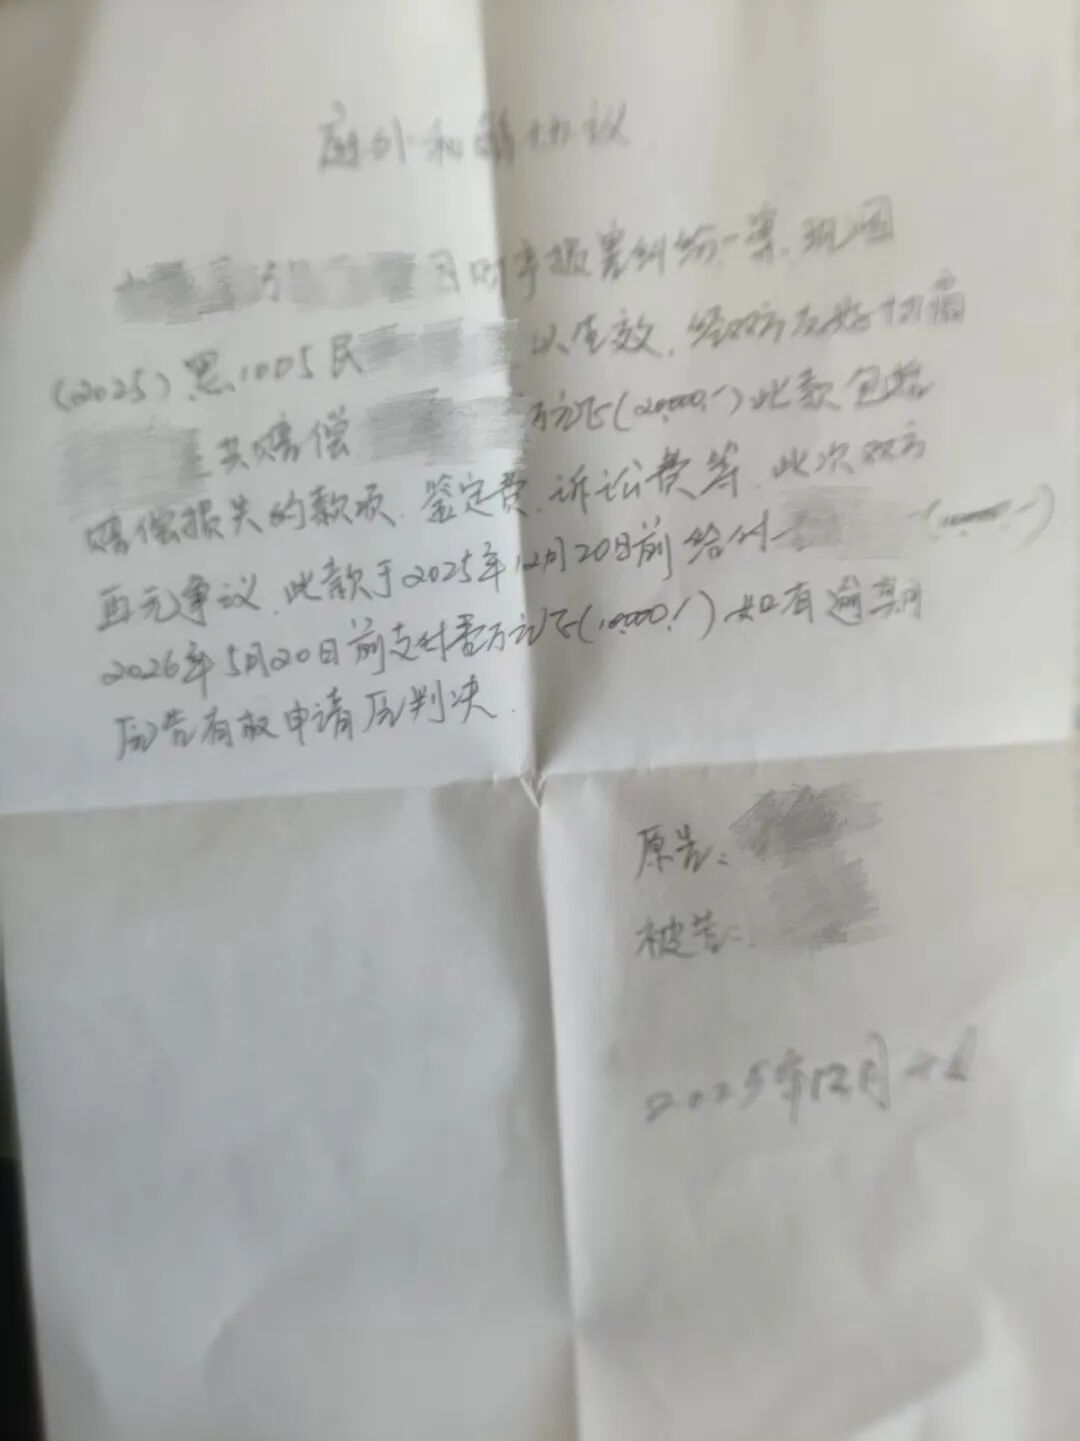 庭外和解协议
财产损害纠纷一案，现因
(2025)黑1005民 以生效，经双方友好协商
共赔偿 万元正(20,000.-)此款包括
赔偿损失的款项、鉴定费、诉讼费等，此次双方
再无争议，此款于2025年12月20日前给付
2026年5月20日前支付壹万元正(10,000.-)如有逾期
原告有权申请原判决.
原告：
被告：
2025年12月